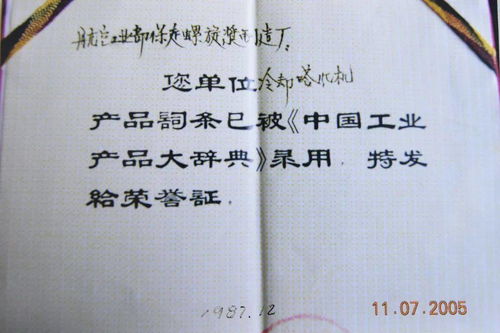 航空工业部保定螺旋桨制造厂:
您单位冷却塔风机
产品詞条已被《中国工业
产品大辞典》录用.特发
給荣誉証.
1987.12
11.07.2005